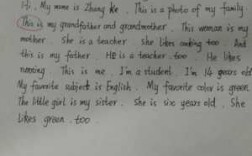 Hi. My name is Zhang Ke. This is a photo of my family.
This is my grandfather and grandmother. This woman is my
mother. She is a teacher. she likes too. And
this is my father. He is a teacher. too. He likes
running. This is me. I'm a student. I'm 14 years old
My favorite subject is English. My favorite color is green.
The little girl is my sister. She is six years old. She
likes green. too.